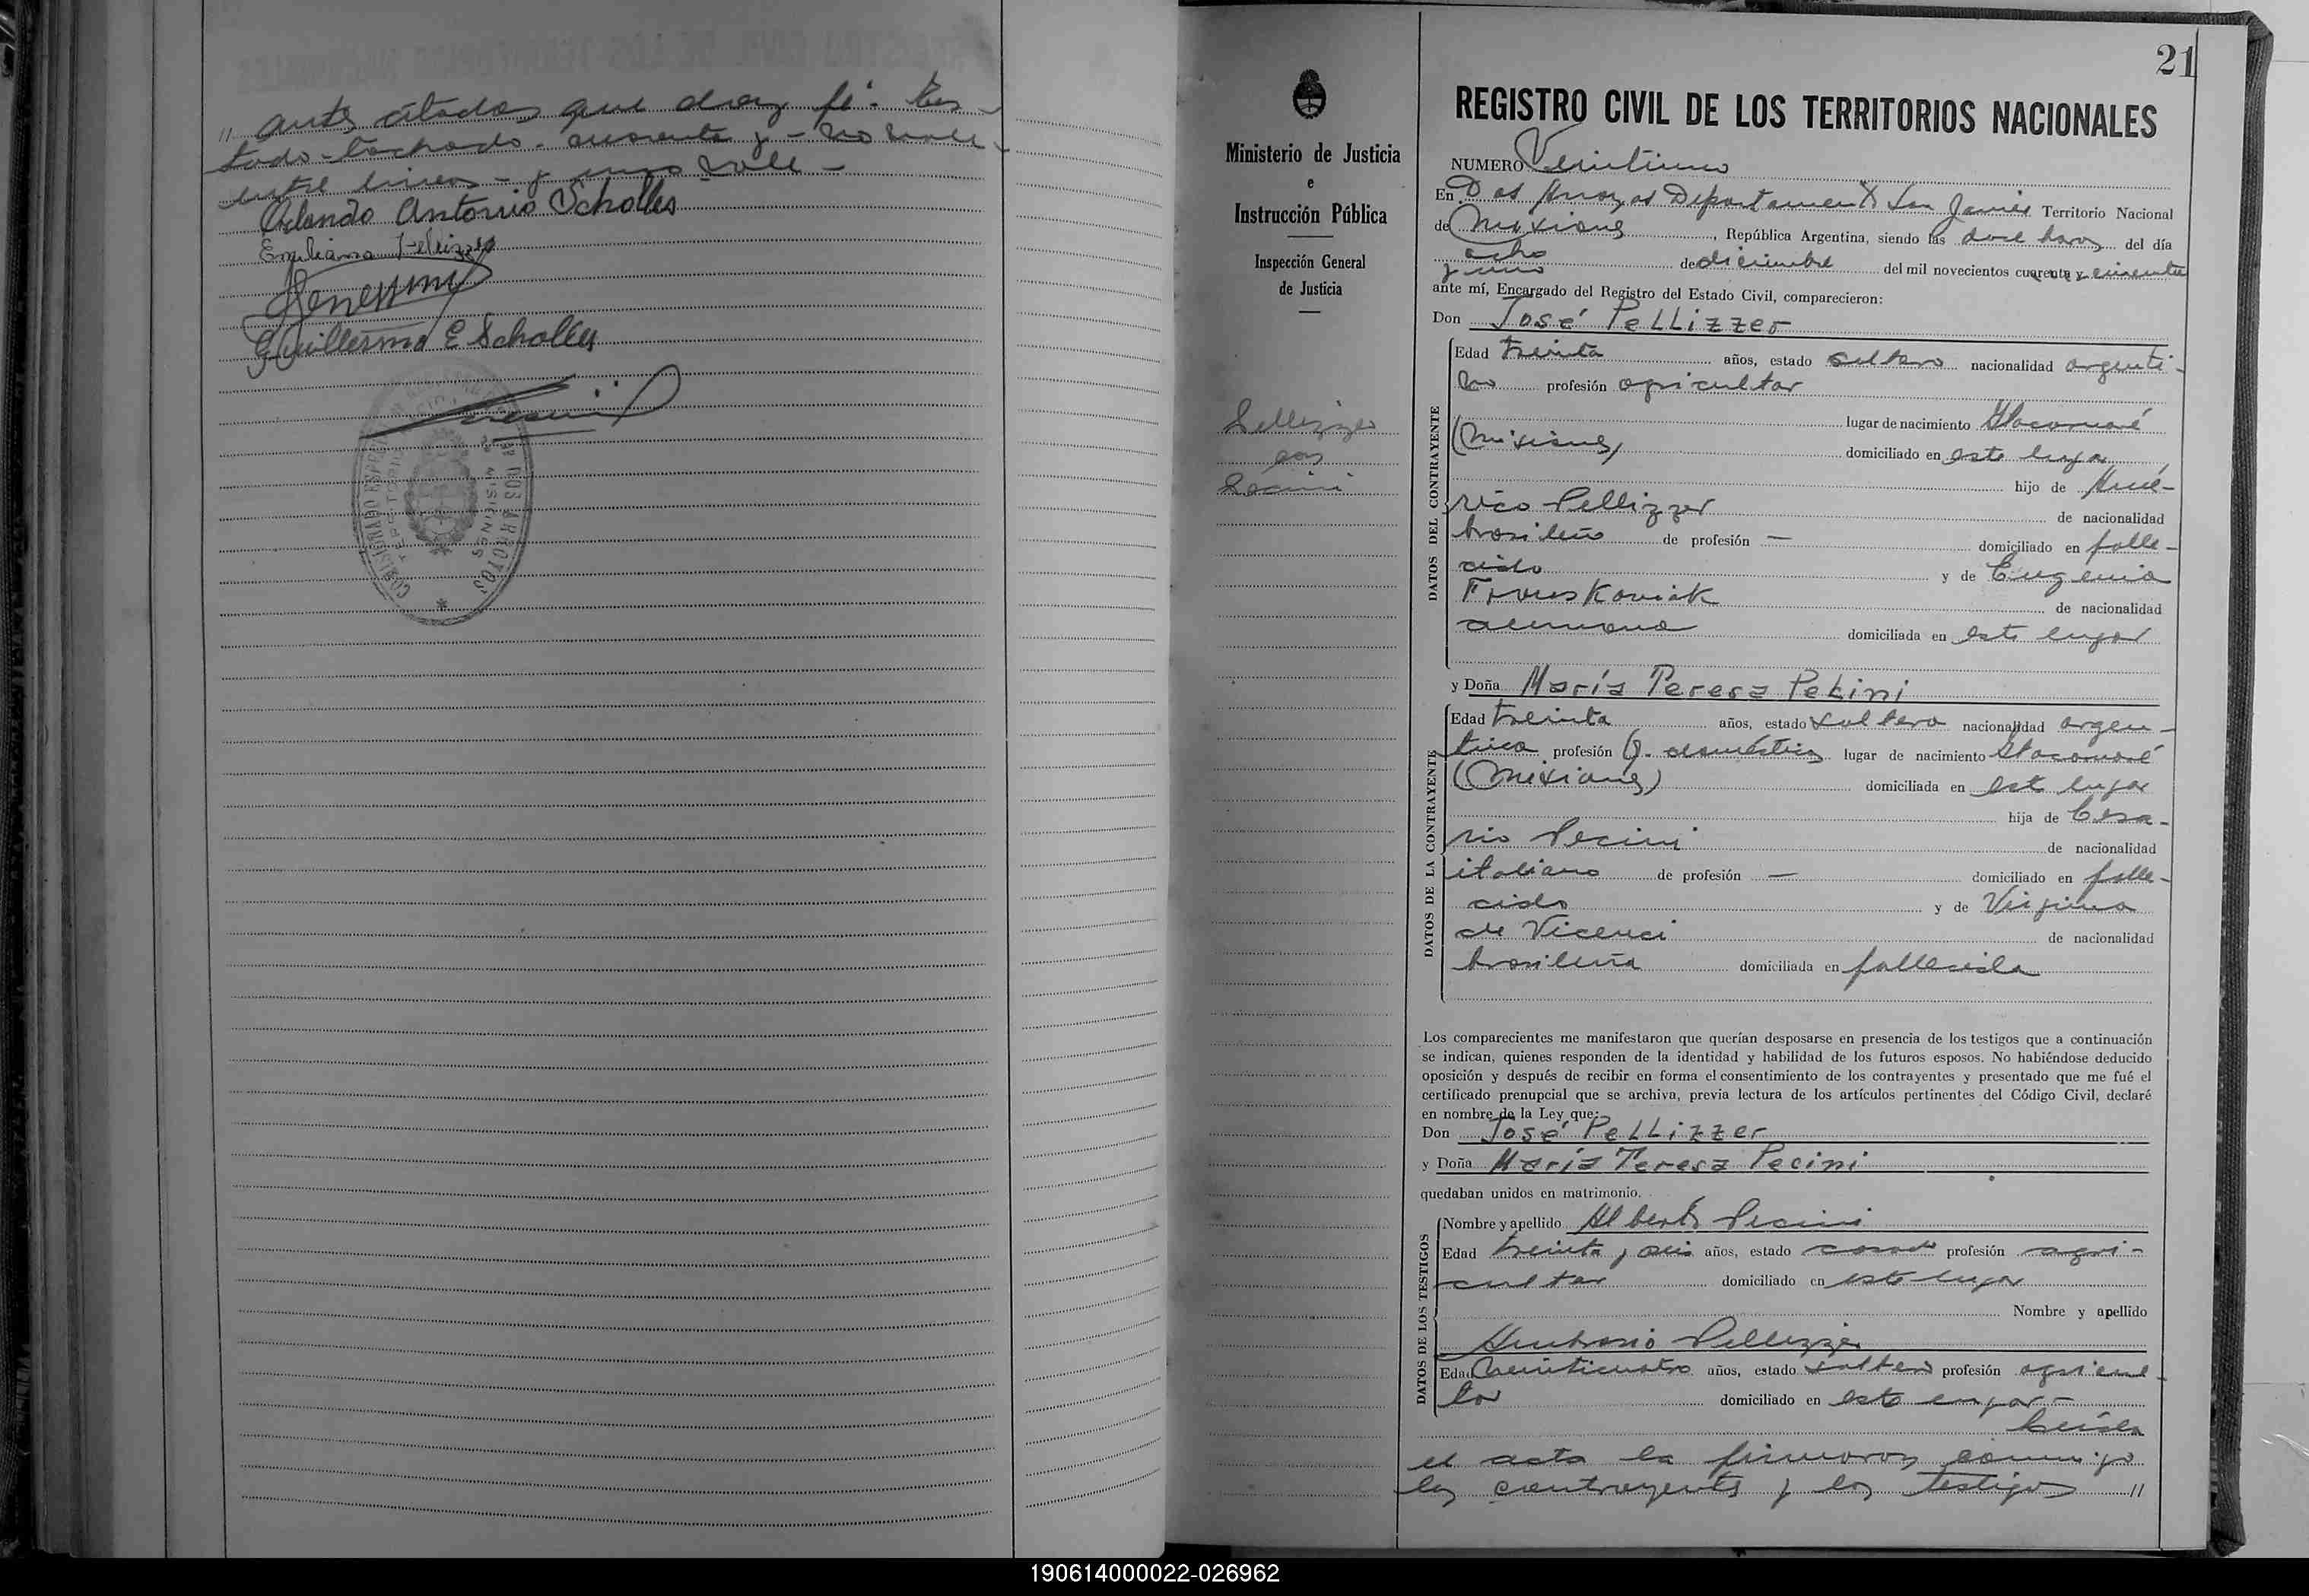 " antes citados que doy fé. Tes-
tado - tachado - cuarenta y - no vale -
entre lineas - y uno vale -
Orlando Antonio Scholles
Emiliana Pellizzer
Guillermo E Scholles
21
Ministerio de Justicia
e
Instrucción Pública
Inspección General
de Justicia
Pellizzer
con
Pecini
REGISTRO CIVIL DE LOS TERRITORIOS NACIONALES
NUMERO Veintiuno
En Dos Arroyos Departamento San Javier Territorio Nacional
de Misiones, República Argentina, siendo las doce horas del día
ocho de diciembre del mil novecientos cuarenta y cincuenta
y uno
ante mí, Encargado del Registro del Estado Civil, comparecieron:
Don José Pellizzer
DATOS DEL CONTRAYENTE
Edad treinta años, estado soltero nacionalidad argenti-
no profesión agricultor
lugar de nacimiento Itacaruaré
(Misiones) domiciliado en este lugar
hijo de Amé-
rico Pellizzer de nacionalidad
brasileño de profesión — domiciliado en falle-
cido y de Eugenia
de nacionalidad
alemana domiciliada en este lugar
y Doña María Teresa Pecini
DATOS DE LA CONTRAYENTE
Edad treinta años, estado soltera nacionalidad argen-
tina profesión q. domésticos lugar de nacimiento Itacaruaré
(Misiones) domiciliada en este lugar
hija de Cesa-
rio Pecini de nacionalidad
italiano de profesión — domiciliado en falle-
cido y de Virginia
de Vicenci de nacionalidad
brasileña domiciliada en fallecida
Los comparecientes me manifestaron que querían desposarse en presencia de los testigos que a continuación
se indican, quienes responden de la identidad y habilidad de los futuros esposos. No habiéndose deducido
oposición y después de recibir en forma el consentimiento de los contrayentes y presentado que me fué el
certificado prenupcial que se archiva, previa lectura de los artículos pertinentes del Código Civil, declaré
en nombre de la Ley que:
Don José Pellizzer
y Doña María Teresa Pecini
quedaban unidos en matrimonio.
DATOS DE LOS TESTIGOS
Nombre y apellido Alberto Pecini
Edad treinta y seis años, estado casado profesión agri-
cultor domiciliado en este lugar
Nombre y apellido
Ambrosio Pellizzer
Edad veinticuatro años, estado soltero profesión agricul-
tor domiciliado en este lugar -
Leída
el acta la firmaron conmigo
los contrayentes y los testigos "
190614000022-026962